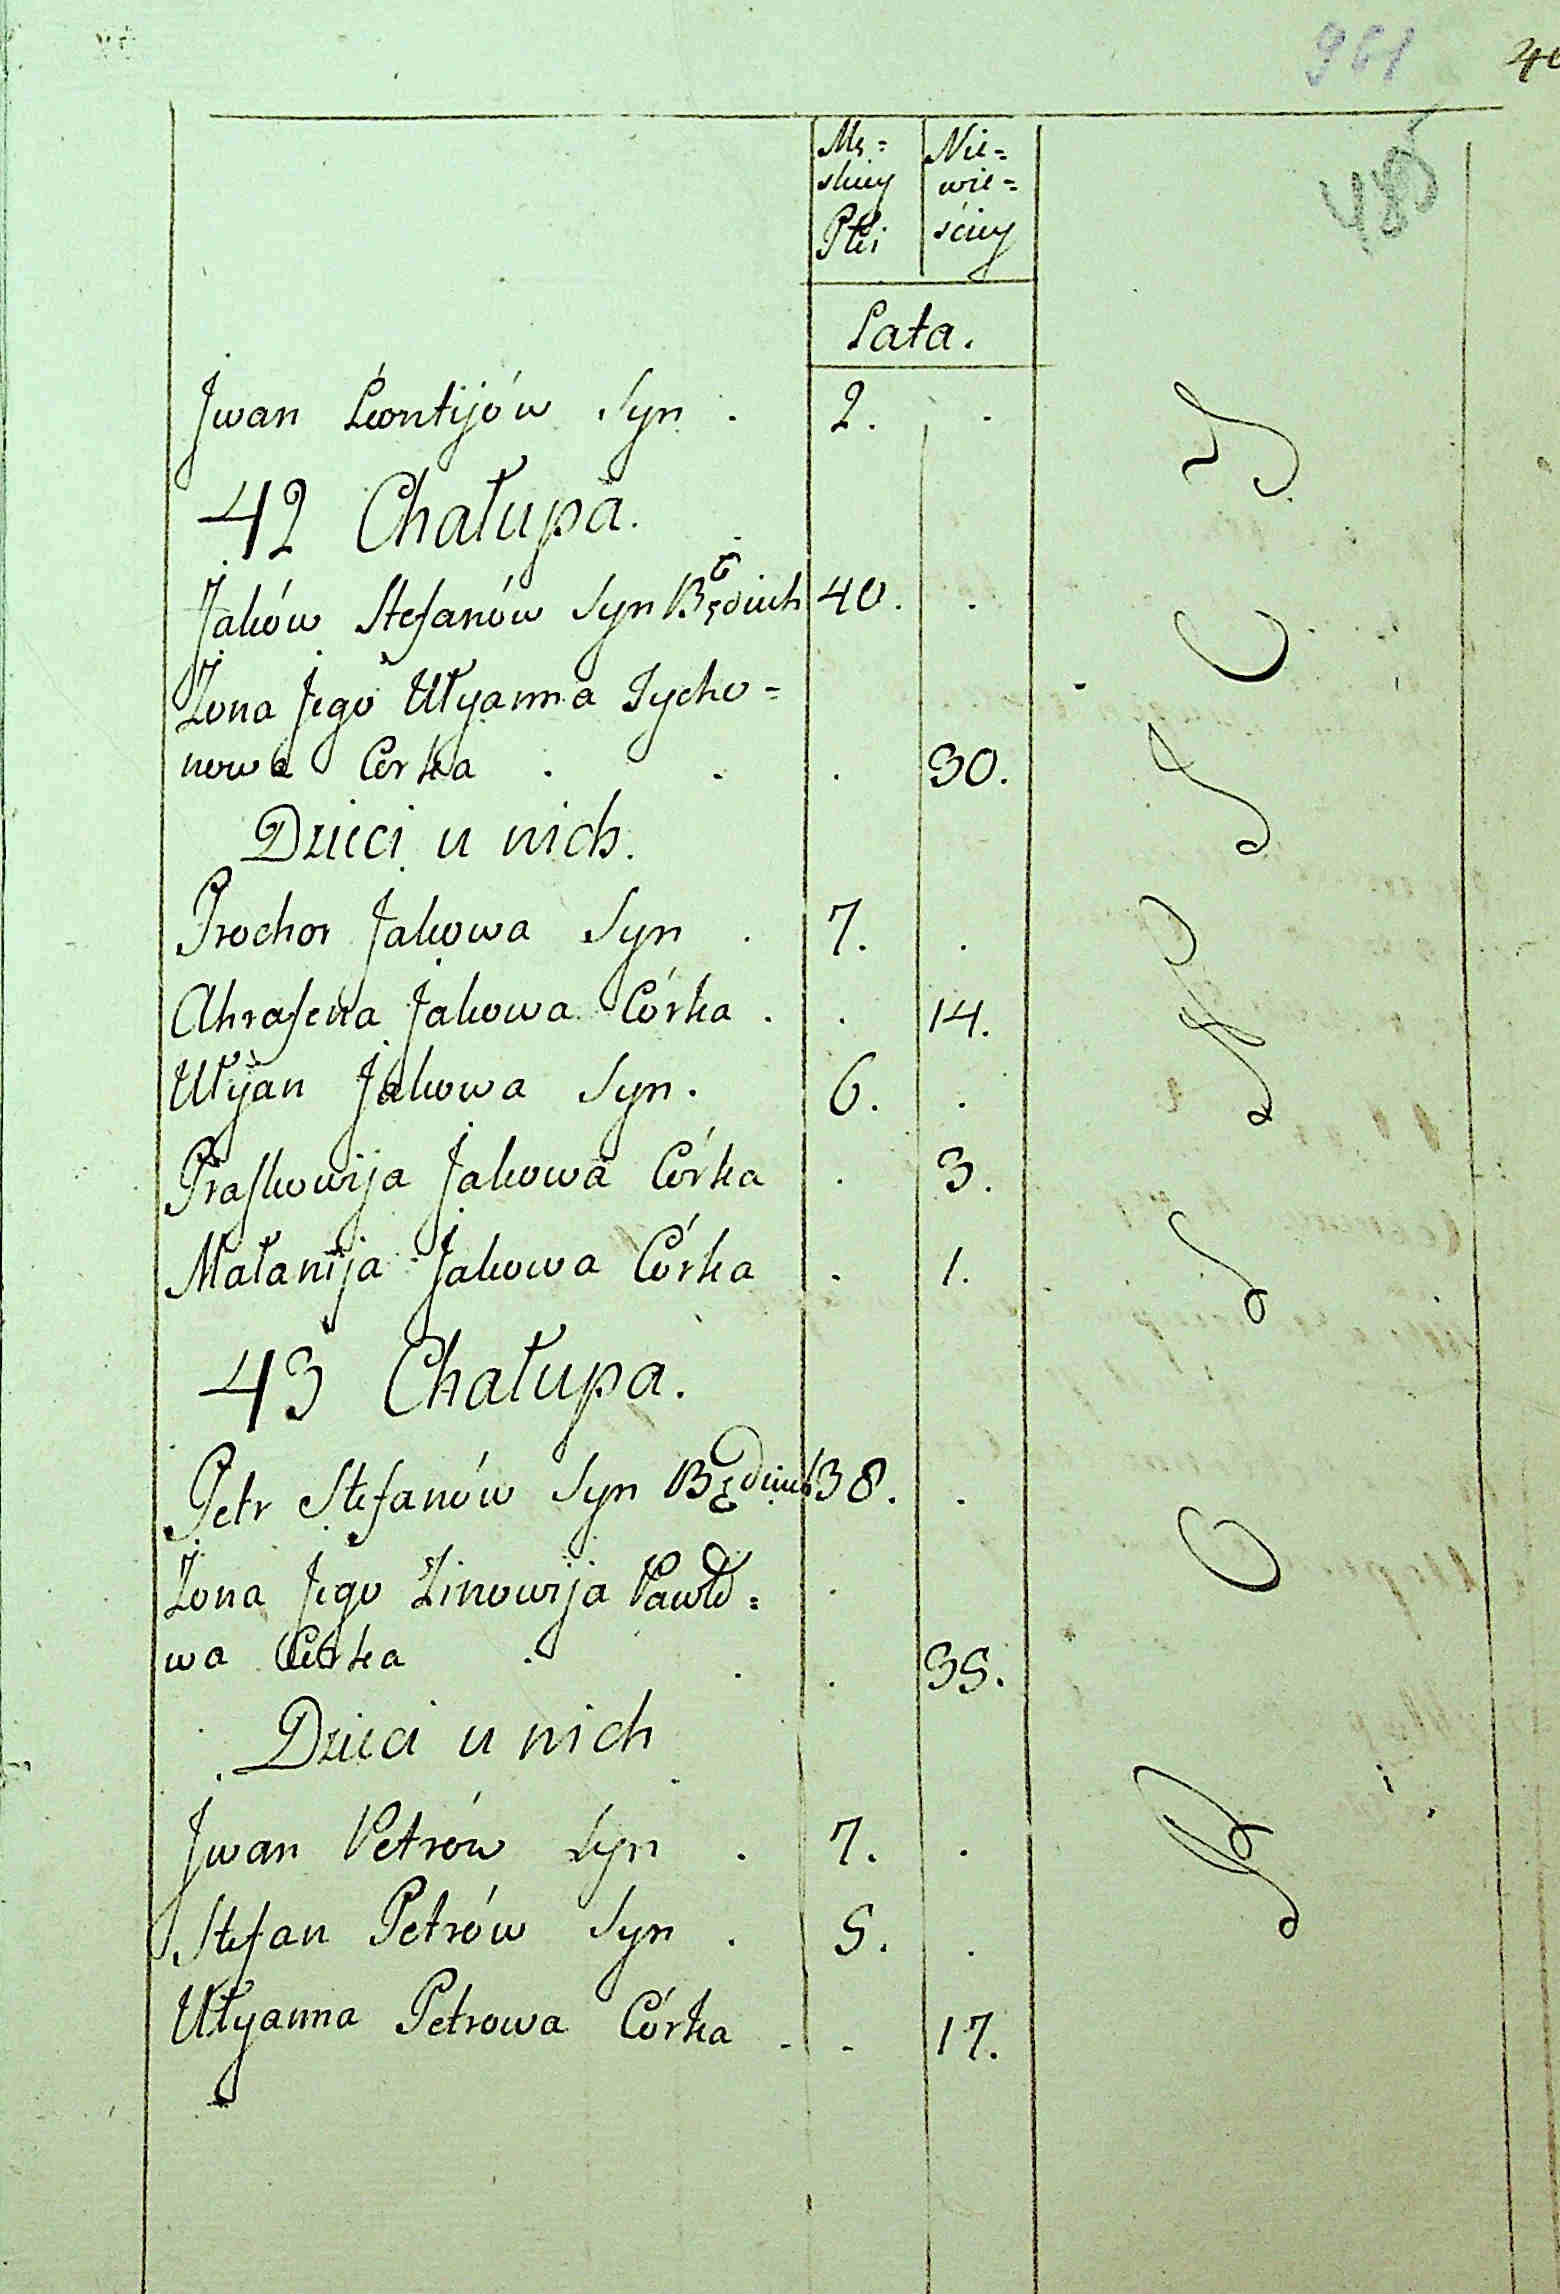 961
485
Mę= Nie=
skiey wie=
Płci ściey
Lata.
Jwan Leontijów Syn . 2. .
42 Chałupa.
Jaków Stefanów Syn 40. .
Żona Jego Ułyanna Tycho=
nowa Corka . . . 30.
Dzieci u nich.
Prochor Jakowa Syn . 7. .
Ahrafena Jakowa Córka . . 14.
Ułyan Jakowa Syn. 6. .
Praskowija Jakowa Córka . 3.
Małanija Jakowa Córka . 1.
43 Chałupa.
Petr Stefanów Syn 38. .
Żona Jego Zinowija Pawło= .
wa Córka . . . 35.
Dzieci u nich
Jwan Petrów Syn . 7. .
Stefan Petrów Syn . 5. .
Ułyanna Petrowa Córka . . 17.